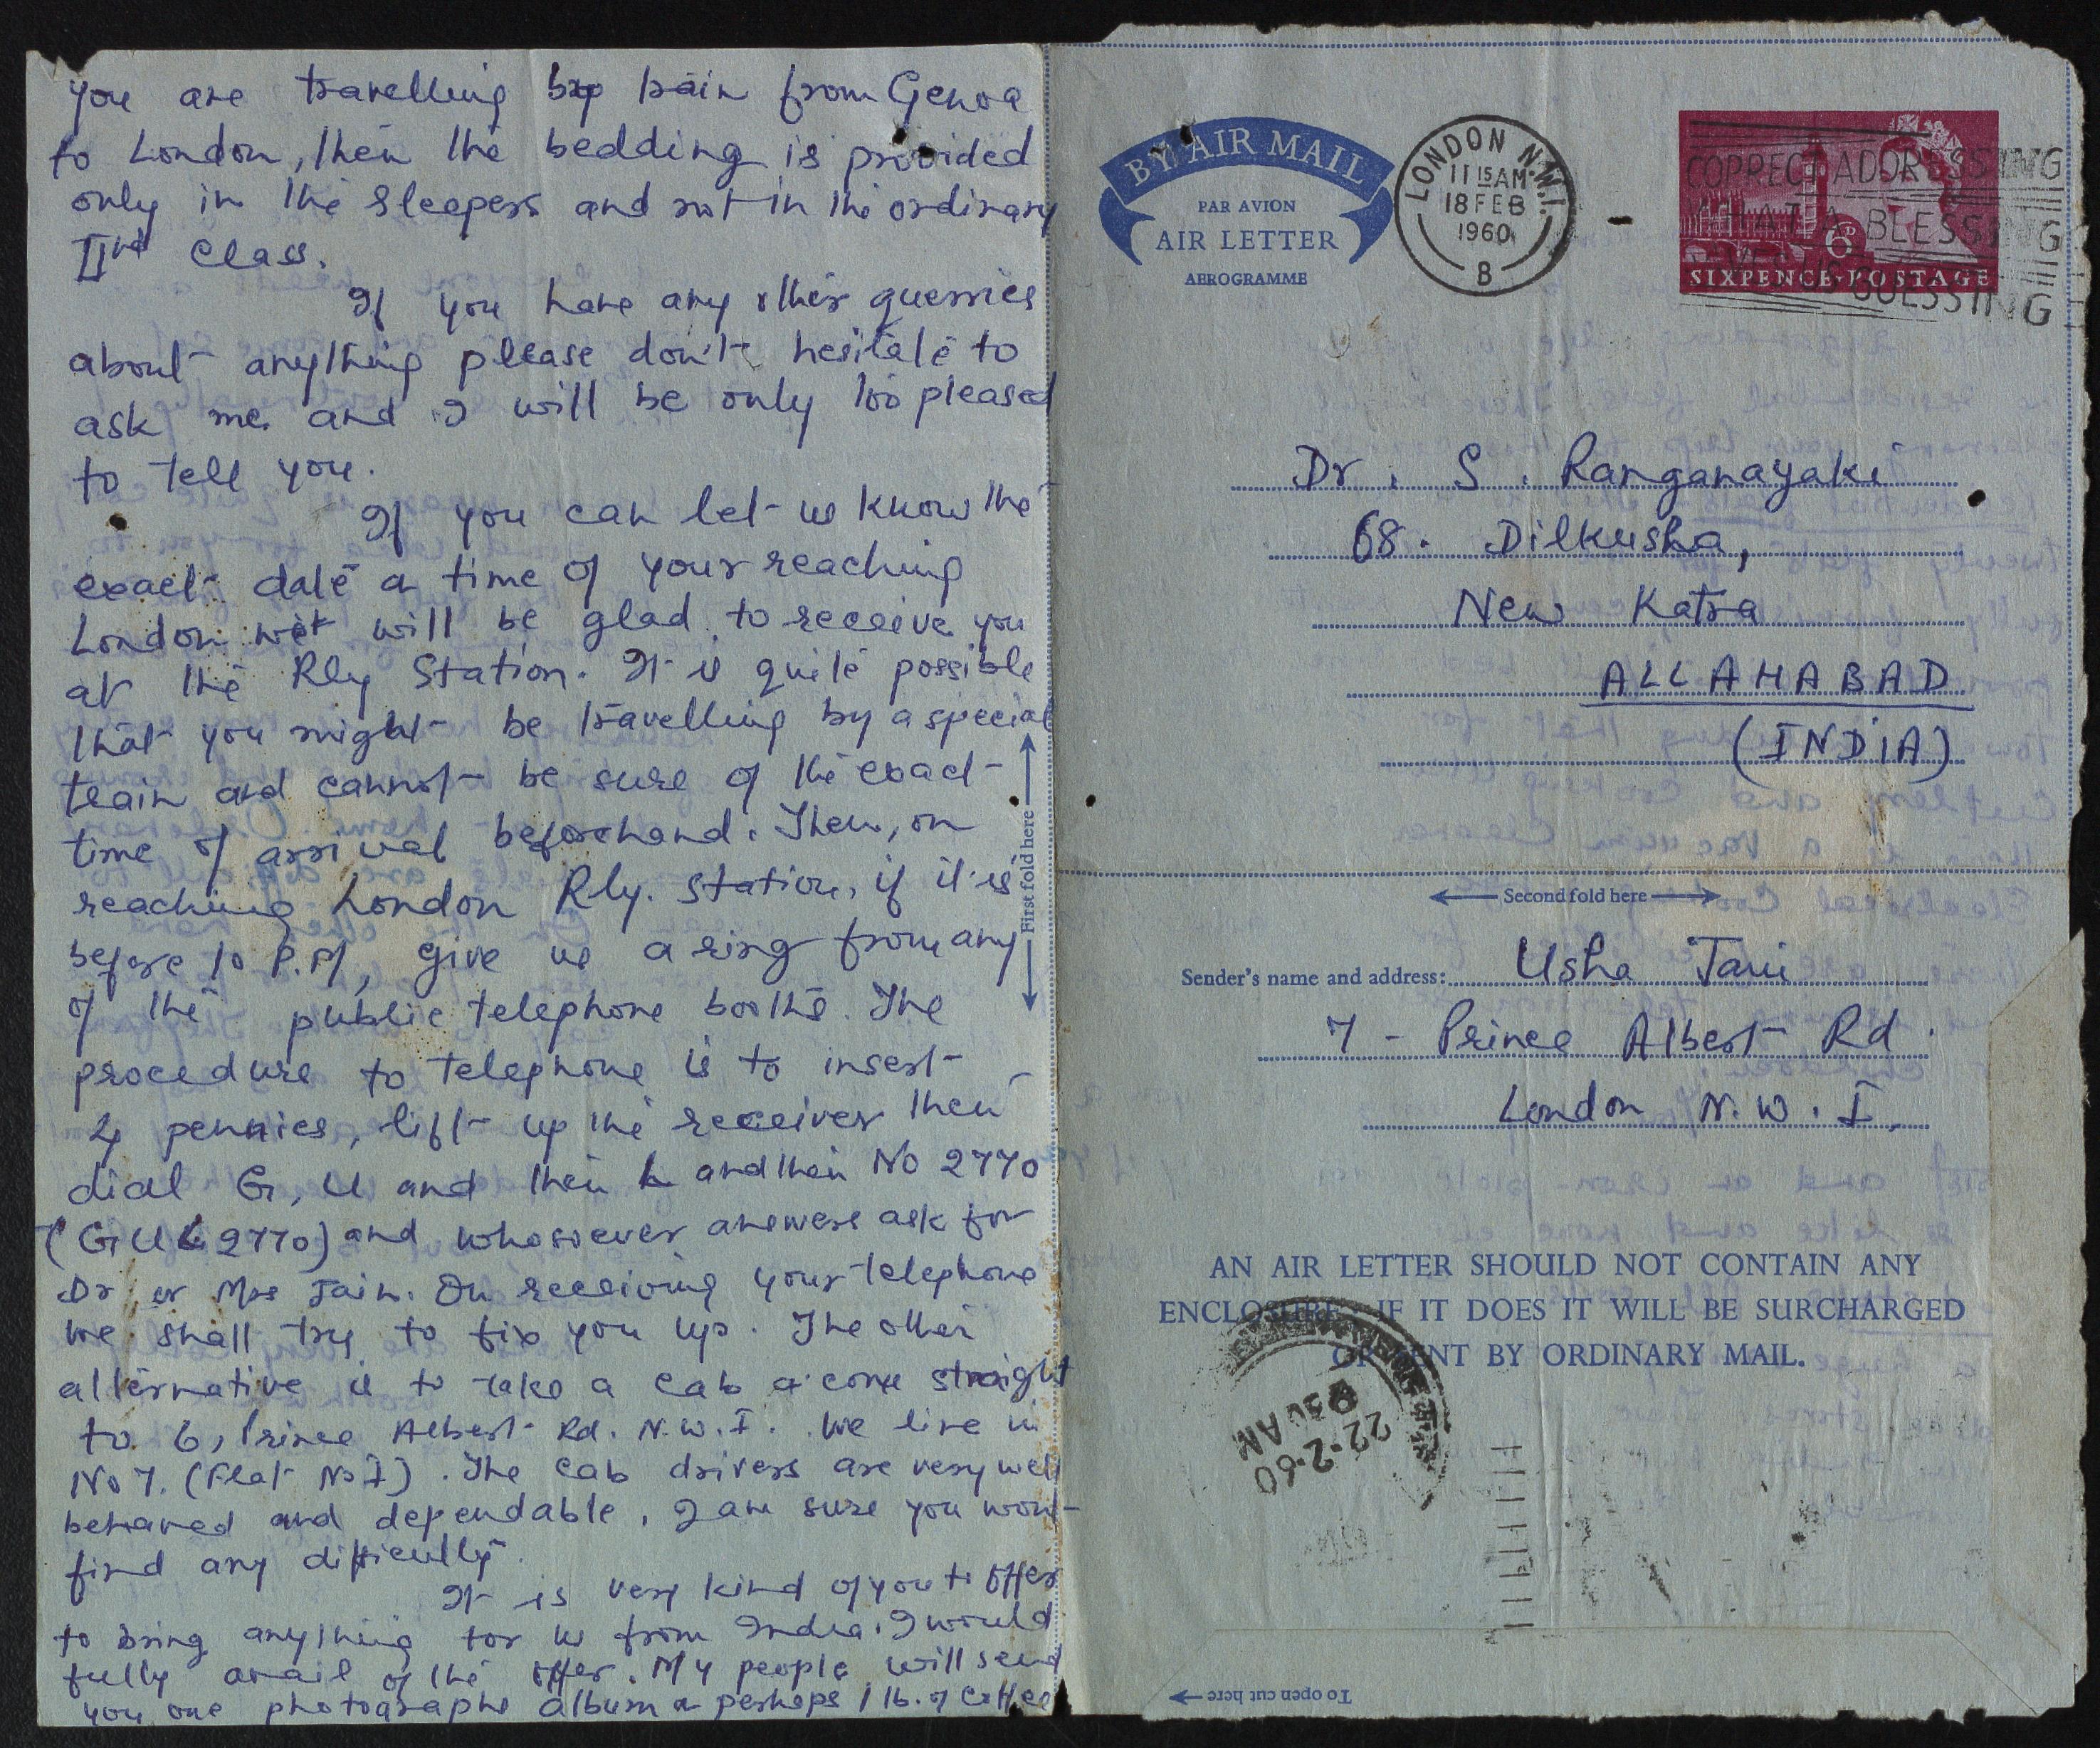 you are travelling by train from Genoa
to London, then the bedding is provided
only in the sleepers and not in the ordinary
IInd Class.
If you have any other querries
about anything please don't hesitate to
ask me and I will be only too pleased
to tell you.
If you can let us know the
exact date & time of your reaching
London we will be glad to receive you
at the Rly Station. It is quite possible
that you might be travelling by a special
train and cannot be sure of the exact
time of arrival beforehand. Then, on
reaching London Rly. Station, if it is
before 10 P.M, give us a ring from any
of the public telephone booths. The
procedure to telephone is to insert
4 pennies, lift up the receiver then
dial G, U and then L and then No 2770
(GUL 2770) and whosoever answers ask for
Dr. or Mrs Jain. On receiving your telephone
we shall try to fix you up. The other
alternative is to take a cab & come straight
to 6, Prince Albert Rd. N.W.I. We live in
No 7. (Flat No I). The cab drivers are very well
behaved and dependable, I am sure you wont
find any difficulty.
It is very kind of you to offer
to bring anything for us from India. I would
fully avail of the offer. My people will send
you one photographs album & perhaps 1 lb. of coffee
First fold here
BY AIR MAIL
PAR AVION
AIR LETTER
AEROGRAMME
LONDON N.W.1.
11 15 AM
18 FEB
1960
B
CORRECT ADDRESSING
WHAT A BLESSING
GUESSING
6D
SIXPENCE POSTAGE
Dr. S. Ranganayaki
68. Dilkusha,
New Katra
ALLAHABAD
(INDIA)
Second fold here
Sender's name and address: Usha Jain
7 - Prince Albert Rd.
London N.W.I.
AN AIR LETTER SHOULD NOT CONTAIN ANY
ENCLOSURE; IF IT DOES IT WILL BE SURCHARGED
OR SENT BY ORDINARY MAIL.
22.2.60
9 30 AM
To open cut here